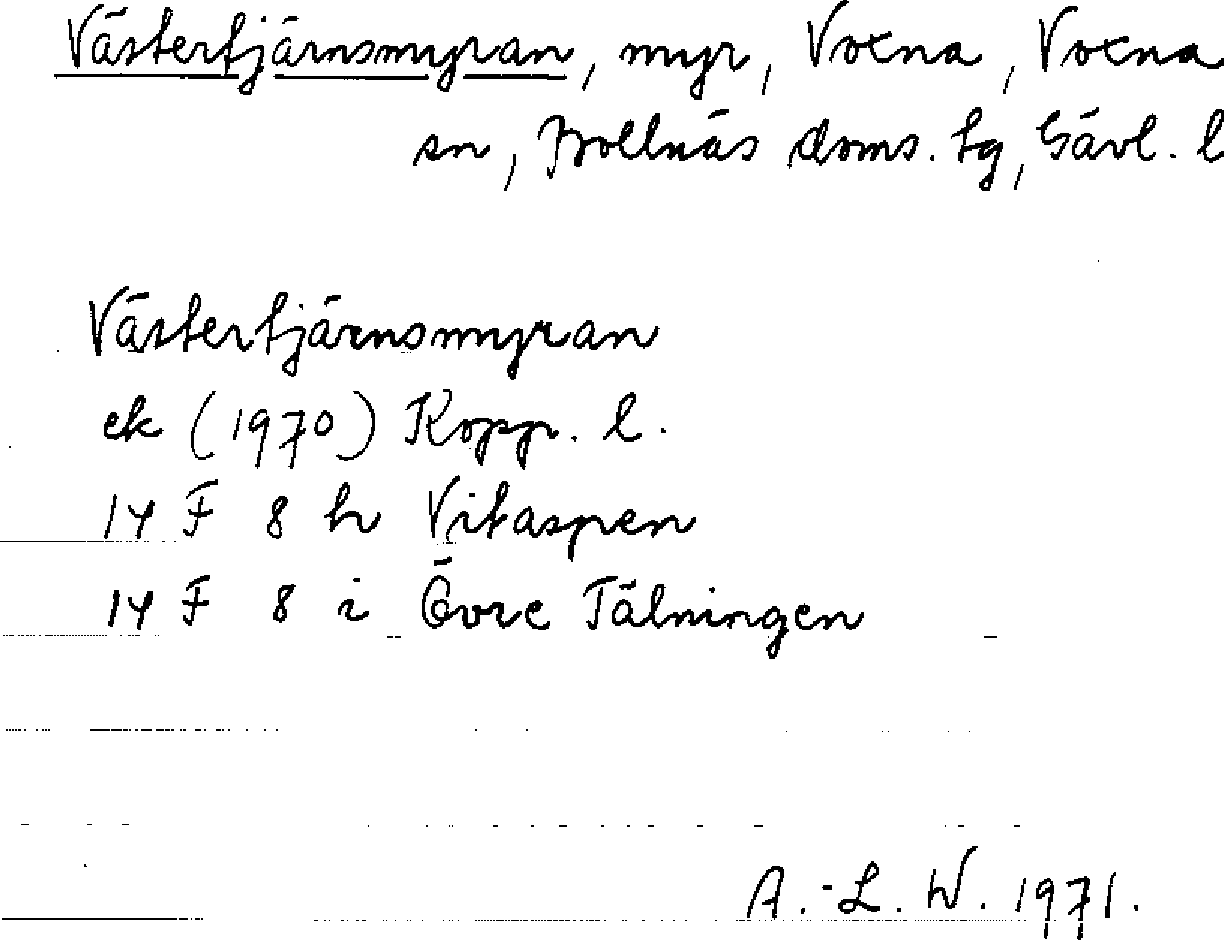 Västertjärnsmyran, myr, Voxna, Voxna
sn, Bollnäs doms. tg, Gävl. l
Västertjärnsmyran
ek (1970) Kopp. l.
14 F 8 h Vitaspen
14 F 8 i Övre Tälningen
A.-L. W. 1971.